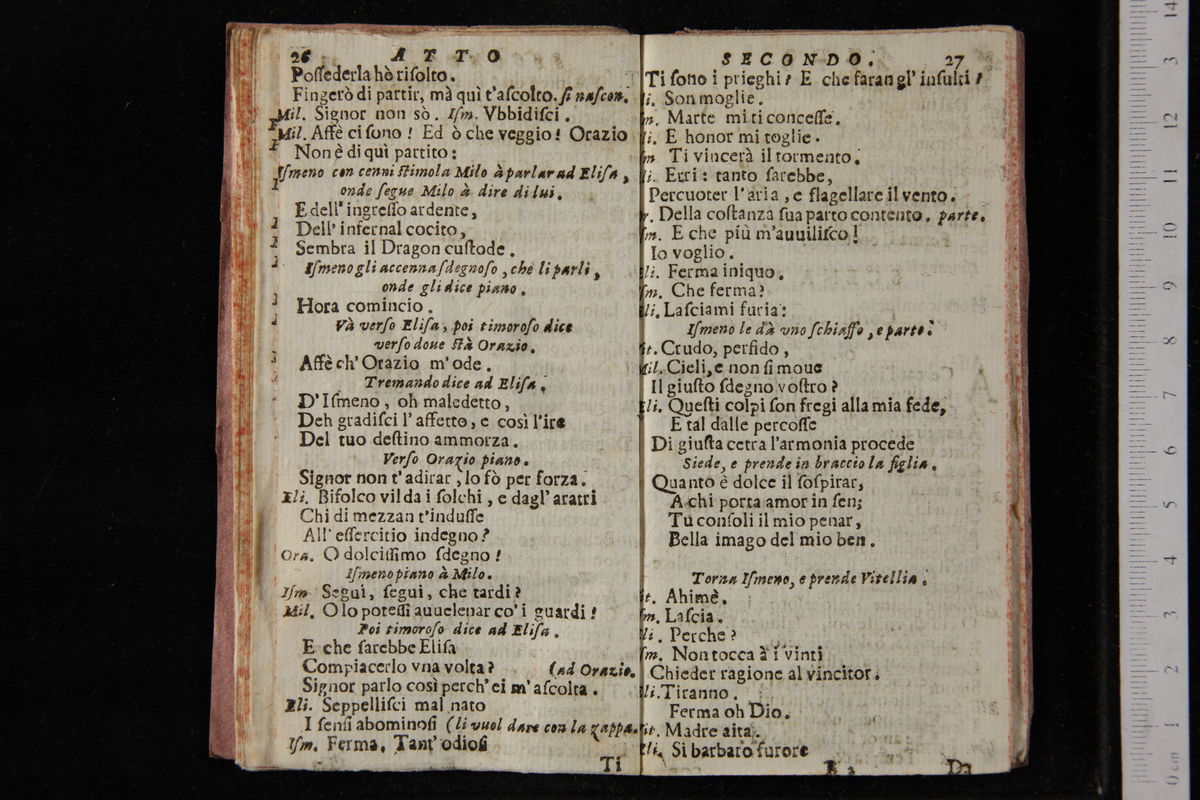 26 ATTO
Poſſederla hò riſolto.
Fingerò di partir, mà quì t'aſcolto. ſi naſcon.
Mil. Signor non sò. Iſm. Vbbidiſci.
Mil. Affè ci ſono! Ed ò che veggio! Orazio
Non è di quì partito:
Iſmeno con cenni ſtimola Milo à parlar ad Eliſa,
onde ſegue Milo à dire di lui.
E dell' ingreſſo ardente,
Dell' infernal cocito,
Sembra il Dragon cuſtode.
Iſmeno gli accenna ſdegnoſo, che li parli,
onde gli dice piano.
Hora comincio.
Và verſo Eliſa, poi timoroſo dice
verſo doue ſtà Orazio.
Affè ch' Orazio m' ode.
Tremando dice ad Eliſa.
D' Iſmeno, oh maledetto,
Deh gradiſci l' affetto, e così l'ire
Del tuo deſtino ammorza.
Verſo Orazio piano.
Signor non t' adirar, lo fò per forza.
Eli. Bifolco vil da i ſolchi, e dagl' aratri
Chi di mezzan t'induſſe
All' eſſercitio indegno?
Ora. O dolciſſimo ſdegno!
Iſmeno piano à Milo.
Iſm Segui, ſegui, che tardi?
Mil. O lo poteſſi auuelenar co' i guardi!
Poi timoroſo dice ad Eliſa.
E che ſarebbe Eliſa
Compiacerlo vna volta? (ad Orazio.
Signor parlo così perch' ei m' aſcolta.
Eli. Seppelliſci mal nato
I ſenſi abominoſi (li vuol dare con la zappa.
Iſm. Ferma. Tant' odioſi
Ti
SECONDO. 27
Ti ſono i prieghi? E che faran gl' inſulti?
li. Son moglie.
m. Marte mi ti conceſſe.
li. E honor mi toglie.
ſm Ti vincerà il tormento.
li. Erri: tanto ſarebbe,
Percuoter l'aria, e flagellare il vento.
r. Della coſtanza ſua parto contento. parte.
ſm. E che più m'auuiliſco!
Io voglio.
li. Ferma iniquo.
ſm. Che ferma?
li. Laſciami furia:
Iſmeno le dà vno ſchiaffo, e parte.
it. Crudo, perfido,
Mil. Cieli, e non ſi moue
Il giuſto ſdegno voſtro?
Eli. Queſti colpi ſon fregi alla mia fede,
E tal dalle percoſſe
Di giuſta cetra l'armonia procede
Siede, e prende in braccio la figlia.
Quanto è dolce il ſoſpirar,
A chi porta amor in ſen;
Tu conſoli il mio penar,
Bella imago del mio ben.
Torna Iſmeno, e prende Vitellia.
it. Ahimè.
ſm. Laſcia.
li. Perche?
ſm. Non tocca à i vinti
Chieder ragione al vincitor.
li. Tiranno.
Ferma oh Dio.
it. Madre aita.
Eli. Si barbaro furore
B 2 Da